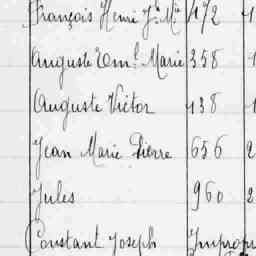 François Henri Jh Mie 472
Auguste Eml Marie 358
Auguste Victor 138
Jean Marie Pierre 656 2
Jules 960 2
Constant Joseph Impropr